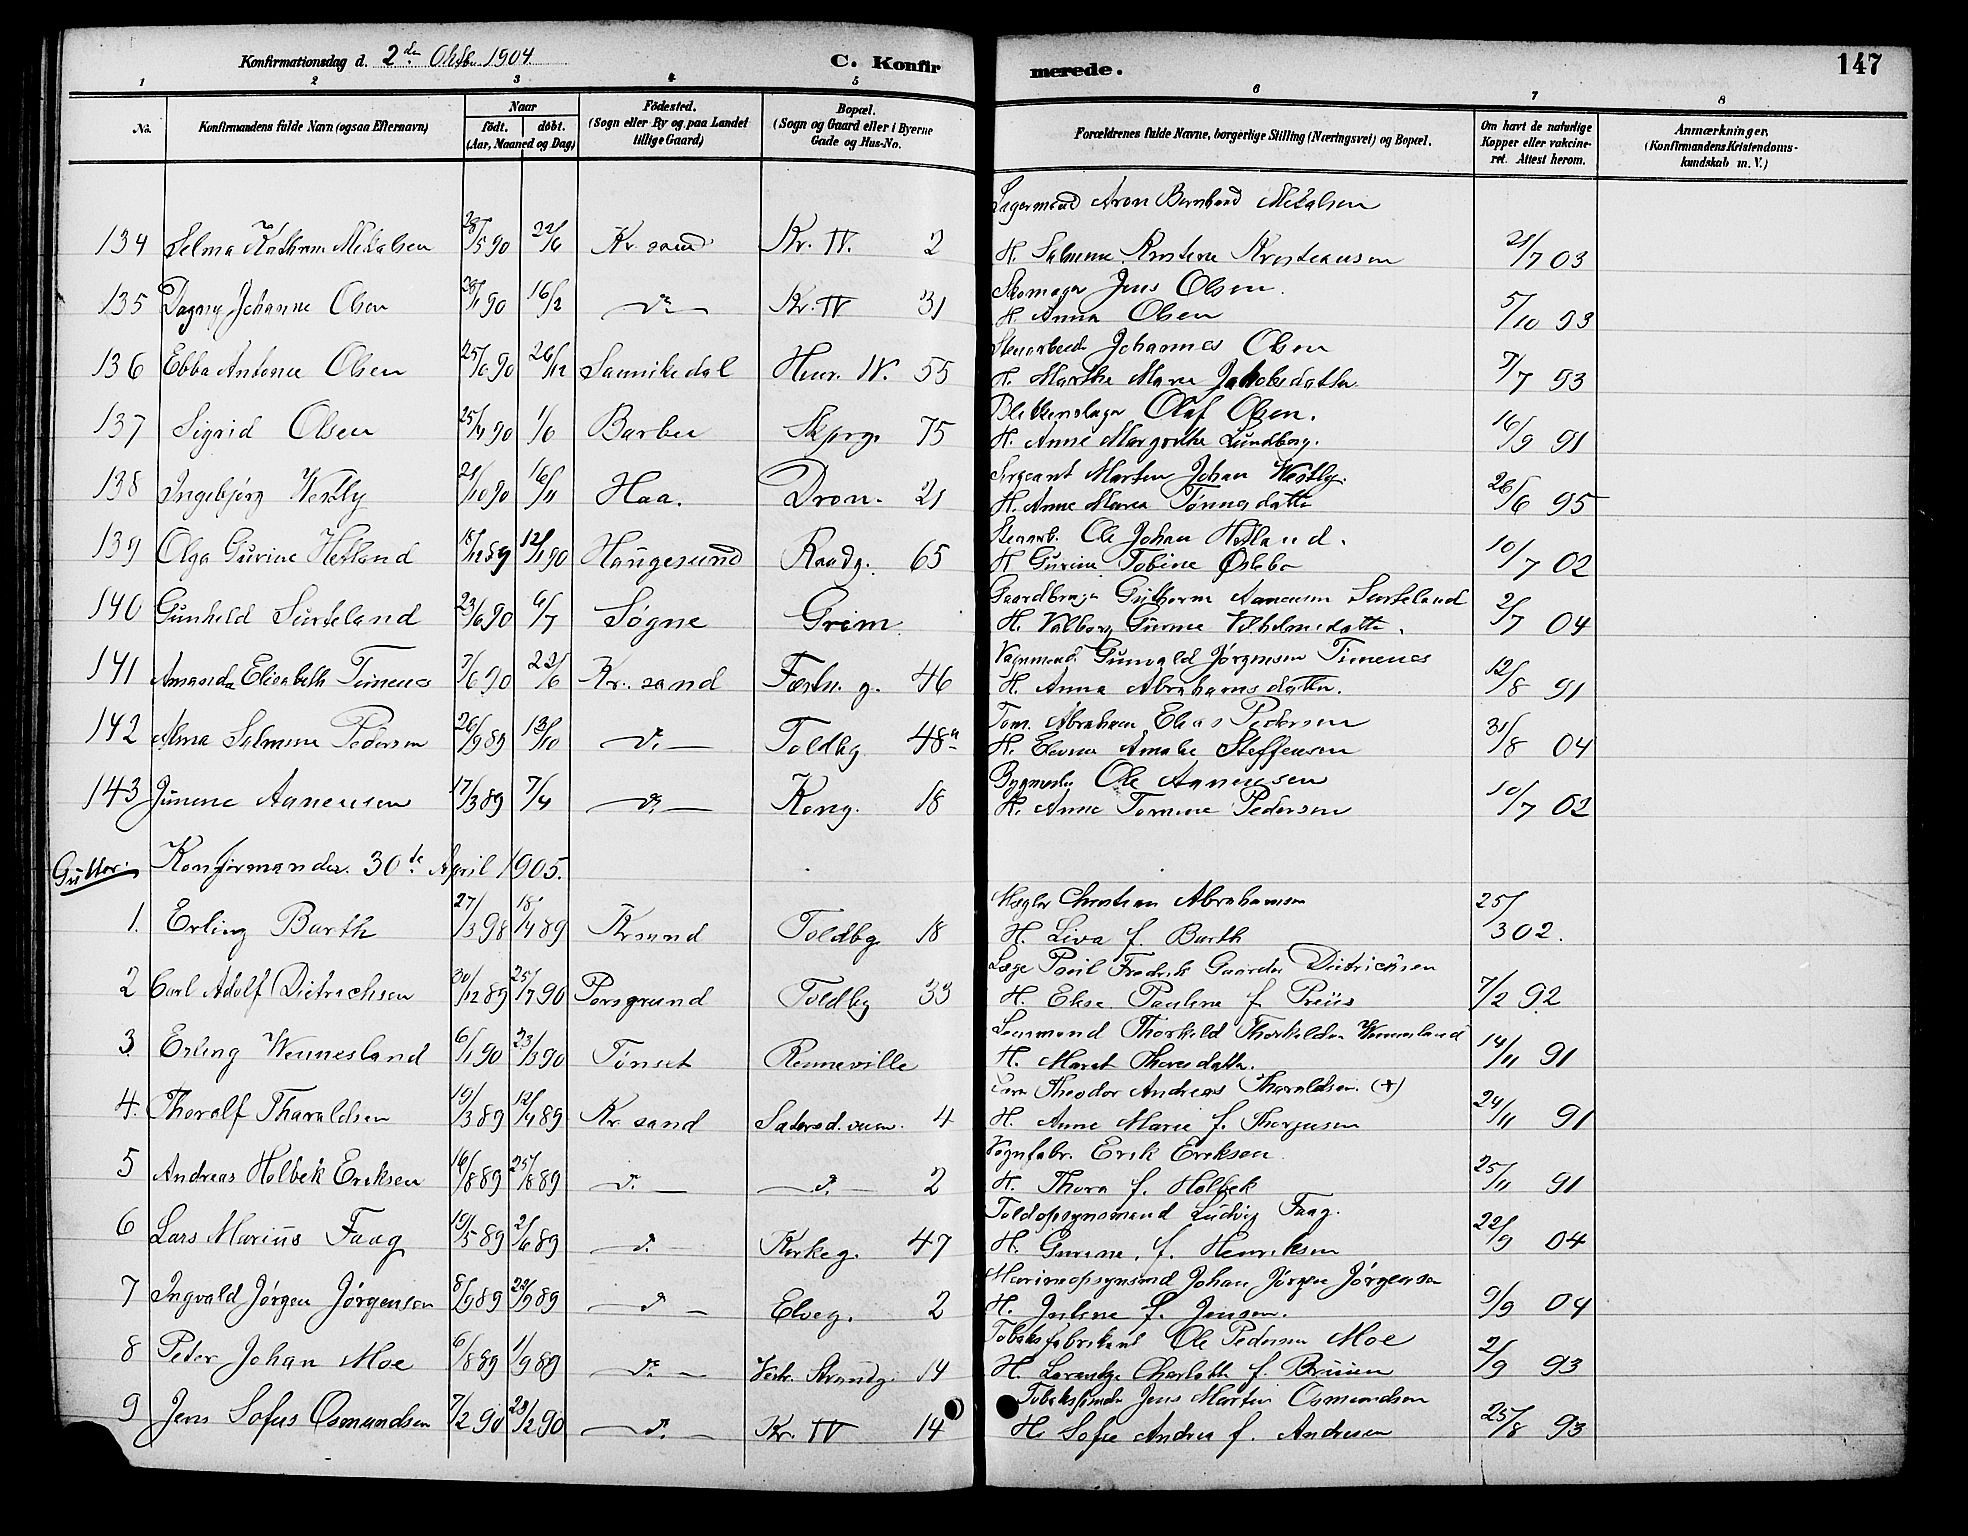 Konfirmationsdag d. 2den Oktbr. 1904. C. Konfirmerede. 147
1 2 3 4 5 6 7 8
No. Konfirmandens fulde Navn (ogsaa Efternavn) Naar født. døbt. (Aar, Maaned og Dag) Fødested. (Sogn eller By og paa Landet tillige Gaard) Bopæl. (Sogn og Gaard eller i Byerne Gade og Hus-No. Forældrenes fulde Navne, borgerlige Stilling (Næringsvei) og Bopæl. Om havt de naturlige Kopper eller vakcineret. Attest herom. Anmærkninger. (Konfirmandens Kristendomskundskab m. V.)
Lagermand Aron Bernhard Mikalsen
134 Selma Kathrine Mikalsen 28/5 90 22/6 Kr. sand Kr. IV. 2 H. Salmine Kristine Kristiansen 21/7 03
Skomager Jens Olsen.
135 Dagny Johanne Olsen 28/1 90 16/2 do Kr. IV 31 H. Anna Olsen 5/10 93
Stenarbeid. Johannes Olsen
136 Ebba Antonie Olsen 25/6 90 26/12 Sannikedal Henr. W. 55 H. Marthe Marie Jakobsdatter 7/7 93
Blikkenslager Olaf Olsen.
137 Sigrid Olsen 25/4 90 1/6 Barbu Skprg. 75 H. Anne Margrethe Lundberg. 16/9 91
Sergeant Morten Johan Westby.
138 Ingebjørg Westby 21/10 90 16/11 Haa. Dron. 21 H. Anne Marea Tønnesdatter 26/6 95
Stenarb. Ole Johan Hetland.
139 Olga Gurine Hetland 18/12 89 12/1 90 Haugesund Raadg. 65 H. Gurine Tobine Øslebø 10/7 02
Gaardbruger Guthorm Aanensen Surteland
140 Gunhild Surteland 23/6 90 6/7 Søgne Grim H. Valborg Gurine Vilhelmsdatter. 2/7 04
Vognmand. Gunvald Jørgensen Timenes
141 Amanda Elisabeth Timenes 7/6 90 22/6 Kr. sand Fæstn. g. 46 H. Anna Abrahamsdatter. 12/8 91
Tøm. Abraham Elias Pedersen
142 Alma Salmine Pedersen 26/9 89 13/10 do Toldbg 48a H. Elevine Amalie Steffensen 31/8 04
Bygmester Ole Aanensen
143 Junine Aanensen 17/3 89 7/4 do Kong. 18 H. Anne Tomine Pedersen 10/7 02
Gutter. Konfirmander. 30te April 1905.
Mægler Christian Abrahamsen
1. Erling Barth 27/3 98 18/4 89 Krsand Toldbg 18 H. Liva f. Barth 25/3 02.
Læge Povil Fredrik Gaarder Dietrichsen
2 Carl Adolf Dietrichsen 30/12 89 25/7 90 Porsgrund Toldbg 33 H. Elise Pauline f. Preüs 7/2 92
Lensmand Thorkild Thorkildsen Wennesland
3. Erling Wennesland 6/1 90 23/3 90 Tønset Renneville H. Marit Thoresdatter. 14/11 91
Theodor Andreas Tharaldsen. (+)
4. Thoralf Tharaldsen 19/3 89 12/4 89 Kr. sand Satersd. veien. 4 H. Anne Marie f. Thorjusen 24/11 91
Vognfabr. Erik Eriksen.
5 Andreas Holbek Eriksen 16/8 89 25/8 89 do do 2 H. Thora f. Holbek 25/11 91
Toldopsynsmand Ludvig Faag.
6 Lars Marius Faag 19/5 89 2/6 89 do Kirkeg. 47 H. Gurine. f. Henriksen 22/9 04
Marineopsynsmd Johan Jørgen Jørgensen
7 Ingvald Jørgen Jørgensen 8/9 89 22/9 89 do Elveg. 2 H. Juline f. Jensen. 9/9 04
Tobaksfabrikant Ole Pedersen Moe
8 Peder Johan Moe 6/8 89 1/9 89 do Vestr. Strandg. 14 H. Lorentze Charlotte f. Bruun 2/9 93
Tobakspinder Jens Martin Osmundsen
9 Jens Sofus Osmundsen 7/2 90 23/2 90 do Kr. IV 14 H. Sofie Andrea f. Andresen 25/8 93